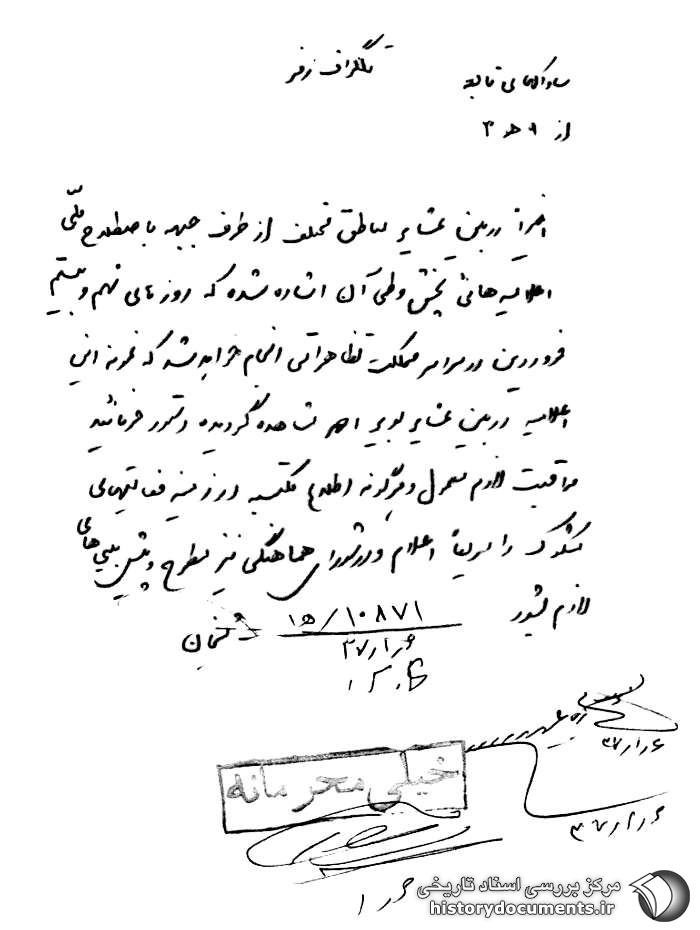 تلگراف رمز
ساواکهای تابعه
از ۹ ه‍ ۳
اخیراً در بین عشایر مناطق مختلف از طرف جبهه باصطلاح ملّی
اعلامیه‌هائی پخش و طی آن اشاره شده که روزهای نهم و بیستم
فروردین در سراسر مملکت تظاهراتی انجام خواهد شد که نمونه این
اعلامیه در بین عشایر بویر احمد مشاهده گردیده دستور فرمائید
مراقبت لازم معمول و هرگونه اطلاع مکتسبه در زمینه فعالیتهای
مشکوک را سریعاً اعلام و در شورای هماهنگی نیز مطرح و پیش بینی‌های
لازم بشود
۱۰۸۷۱/ ۱ه‍
۴۲/۱/۶
۴۲/۱/۶
خیلی محرمانه
۴۲/۱/۶
مرکز بررسی اسناد تاریخی
historydocuments.ir